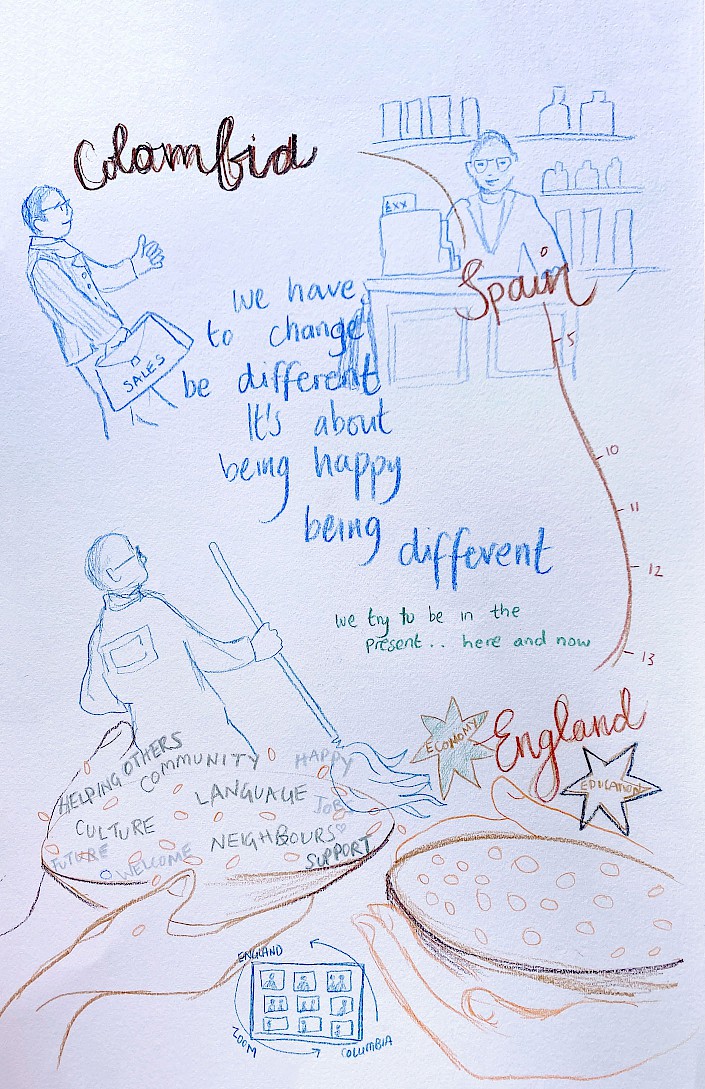 Colambia
EXX
Spain
SALES
we have
to change
be different
It's about
being happy
being
different
5
10
11
12
13
we try to be in the
present.. here and now
ECONOMY
England
EDUCATION
HELPING OTHERS
COMMUNITY
HAPPY
LANGUAGE
JOBS
CULTURE
NEIGHBOURS
FUTURE
WELCOME
SUPPORT
ENGLAND
ZOOM
COLUMBIA